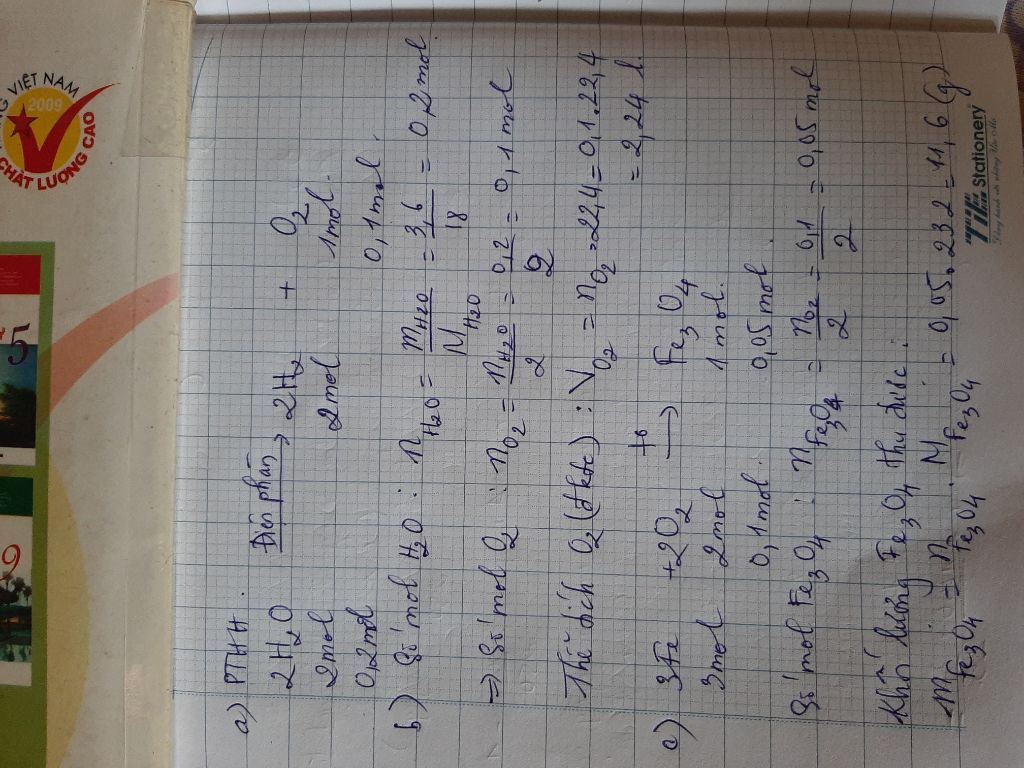 a) PTHH:
2H2O Điện phân → 2H2 + O2
2mol 2mol 1mol.
0,2mol 0,1mol.
b) Số mol H2O: nH2O = mH2O / MH2O = 3,6 / 18 = 0,2 mol.
=) Số mol O2: nO2 = nH2O / 2 = 0,2 / 2 = 0,1 mol
Thể tích O2 (đktc): VO2 = nO2 = 22,4 = 0,1.22,4
= 2,24 l.
c) 3Fe + 2O2 to → Fe3O4
3mol 2mol 1mol.
0,1mol. 0,05mol.
Số mol Fe3O4: nFe3O4 = nO2 / 2 = 0,1 / 2 = 0,05 mol
Khối lượng Fe3O4 thu được:
mFe3O4 = nFe3O4 . MFe3O4 = 0,05.232 = 11,6 (g)
VIỆT NAM
2009
CHẤT LƯỢNG CAO
5
9
TTC Stationery